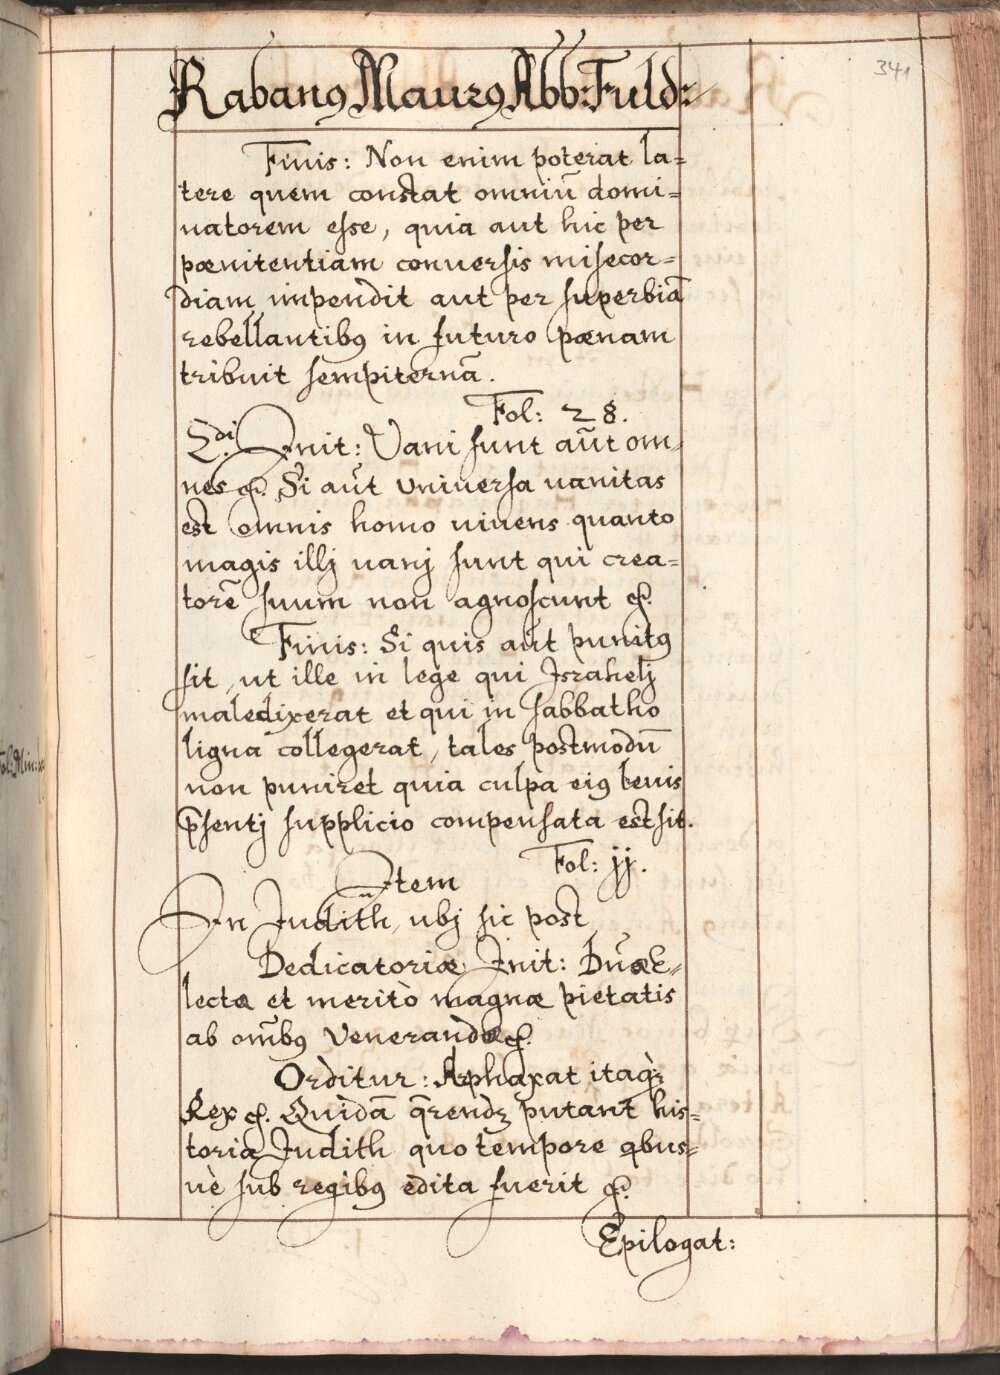 341
Rabanꝰ Maurꝰ Abb: Fuld:
Finis: Non enim poterat la=
tere quem constat omniū domi=
natorem esse, quia aut hic per
pœnitentiam conuersis misecor=
diam impendit aut per superbiā
rebellantibꝰ in futuro pœnam
tribuit sempiternā.
Fol: 28.
2di Init: Vani sunt aūt om
nes &. Si aūt vniuersa uanitas
est omnis homo uiuens quanto
magis illj uanj sunt qui crea=
torē suum non agnoscunt &.
Finis: Si quis aut punitꝰ
sit, ut ille in lege qui Israhelj
maledixerat et qui in sabbatho
ligna collegerat, tales postmodū
non puniret quia culpa eiꝰ leuis
p̄sentj supplicio compensata est sit.
Fol: jj.
Item
In Judith, ubj sic post
Dedicatoriæ Init:
lectæ et meritò magnæ pietatis
ab om̄bꝰ venerandæ &.
Orditur: Arphaxat itaqꝫ
Rex &. Quidā q̄rendꝫ putant his=
toria Judith quo tempore qbus=
uè sub regibꝰ edita fuerit &.
Epilogat: